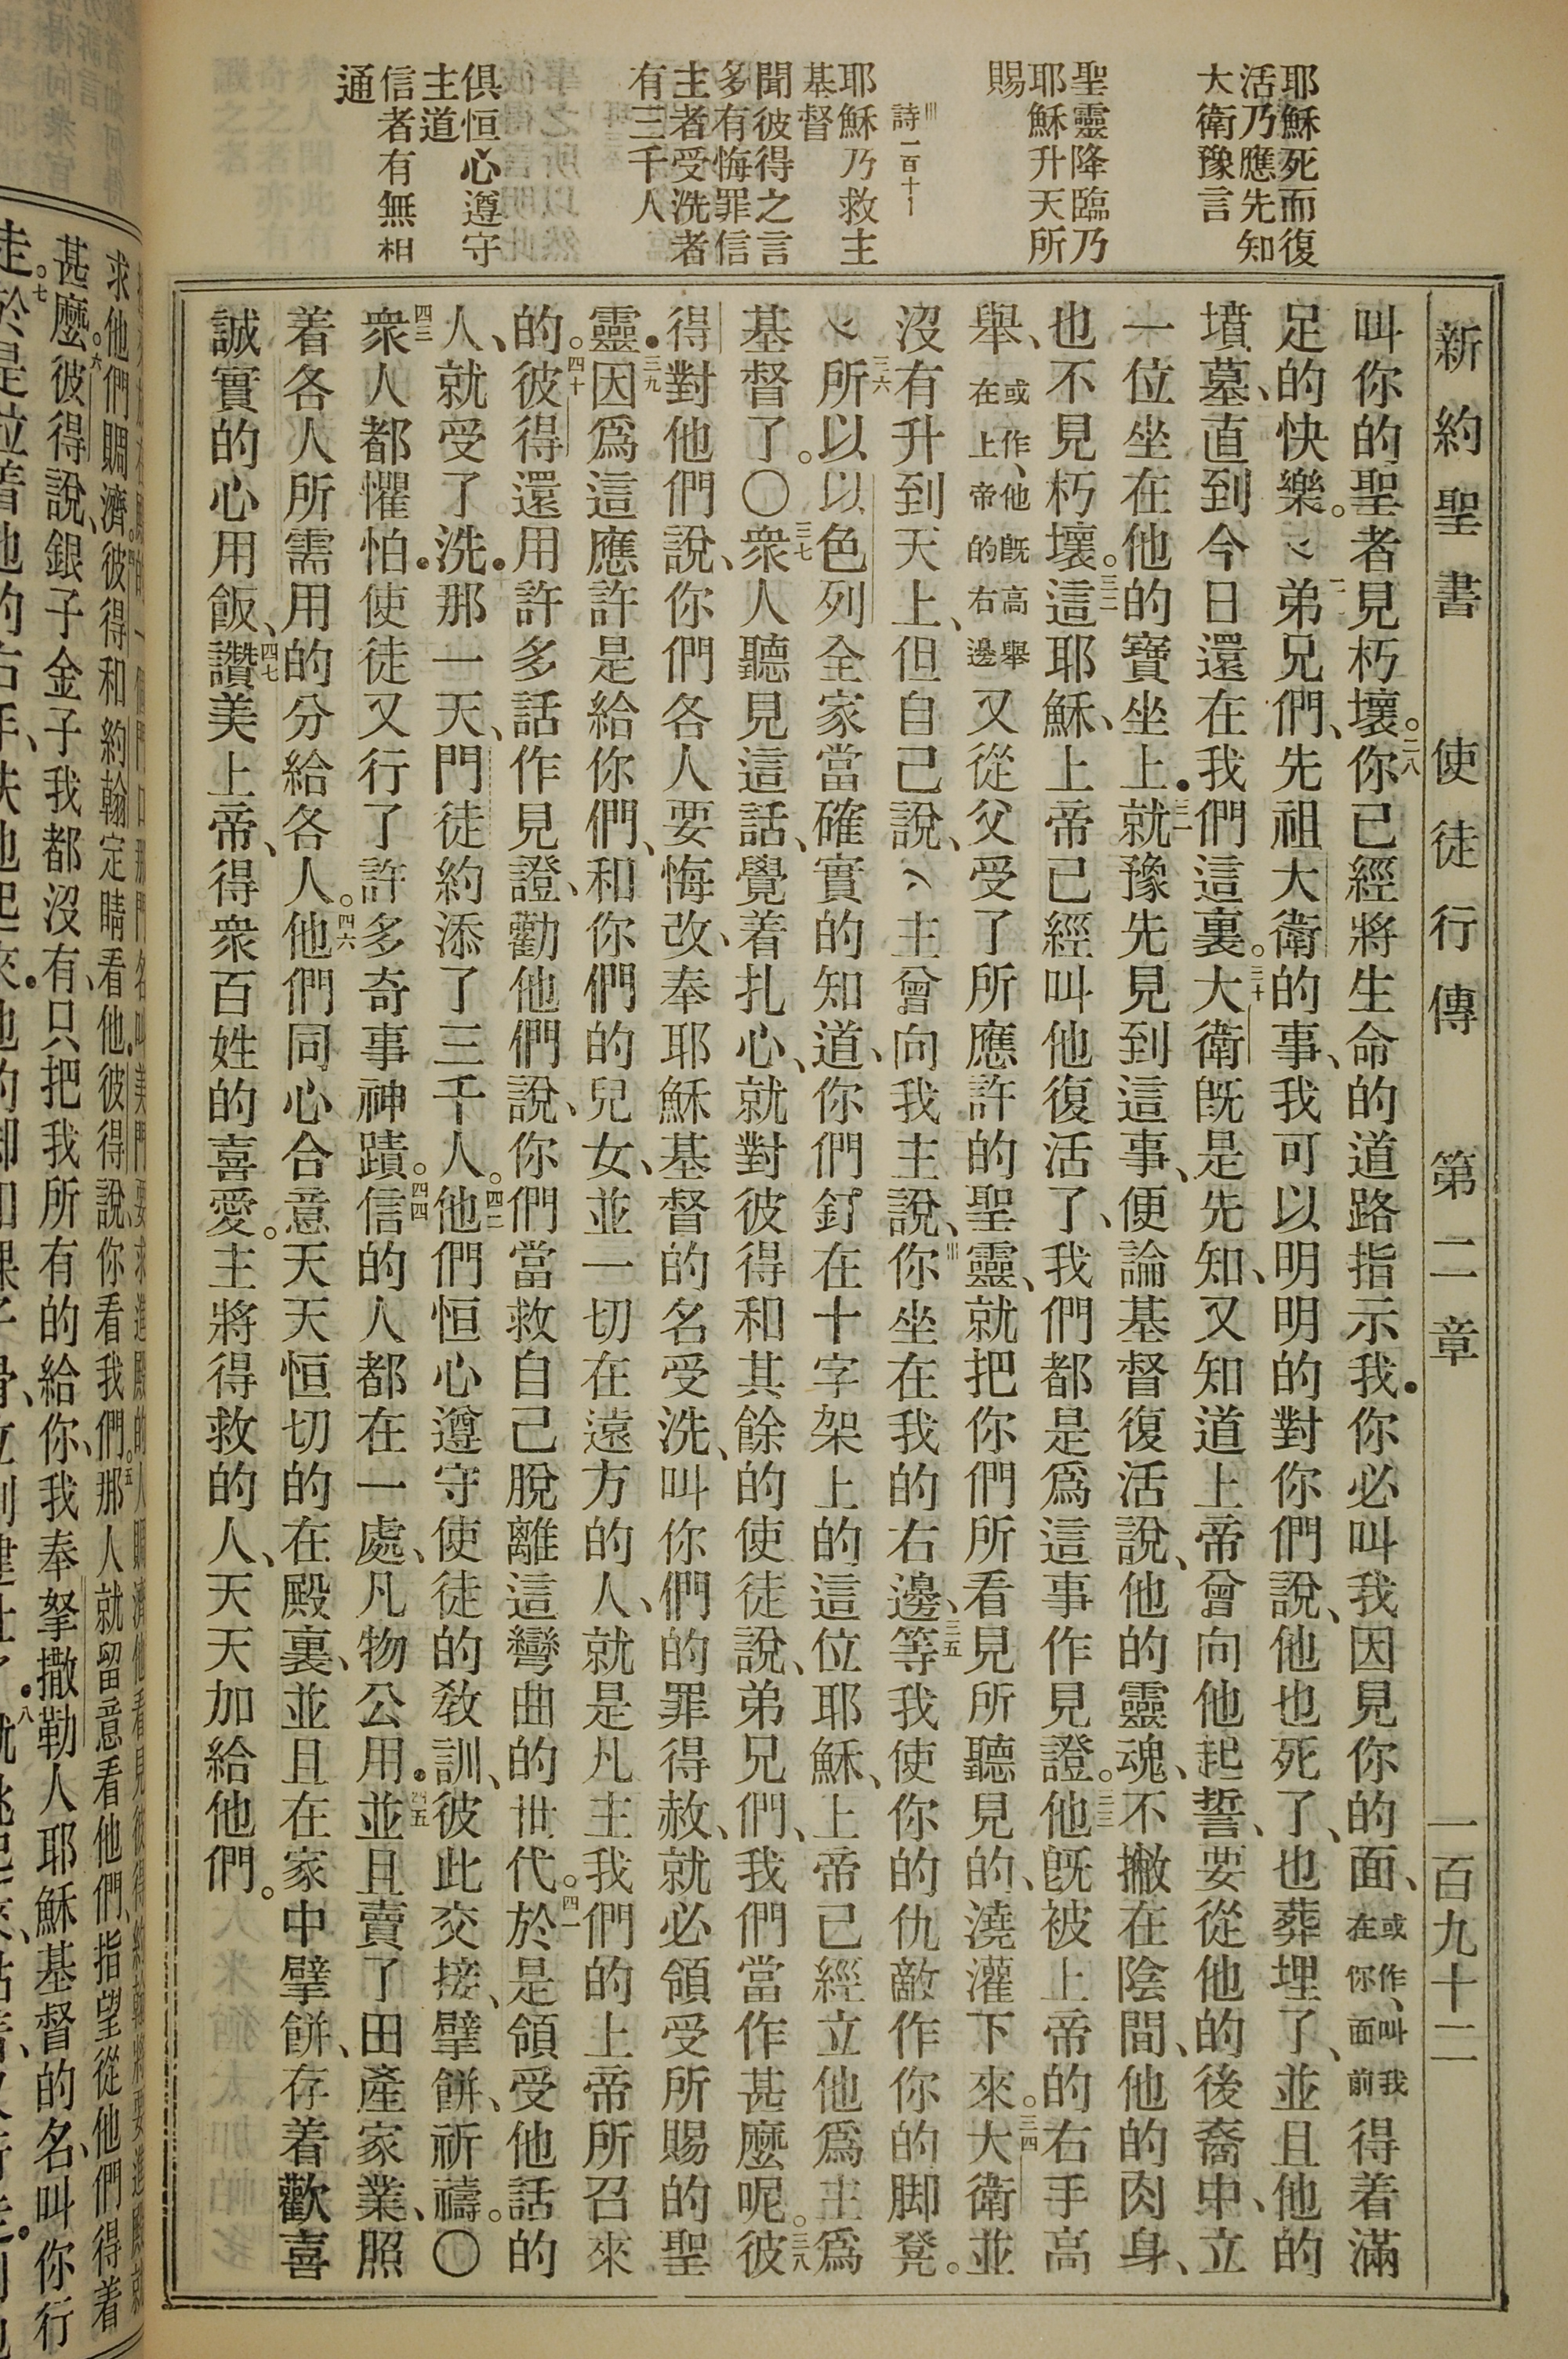 新約聖書　使徒行傳　第二章　一百九十二
耶穌死而復
活乃應先知
大衛豫言
聖靈降臨乃
耶穌升天所
賜
詩一百十
耶穌乃救主
基督
聞彼得之言
多有悔罪信
主者受洗者
有三千人
俱恒心遵守
主道
信者有無相
通
叫你的聖者見朽壞。二八你已經將生命的道路指示我．你必叫我因見你的面、或作、叫我在你面前得着滿
足的快樂。弟兄們、先祖大衛的事、我可以明明的對你們說、他也死了、也葬埋了、並且他的
墳墓、直到今日還在我們這裏。三十大衛旣是先知、又知道上帝曾向他起誓、要從他的後裔中、立
一位坐在他的寶坐上．三一就豫先見到這事、便論基督復活說、他的靈魂、不撇在陰間、他的肉身、
也不見朽壞。三二這耶穌、上帝已經叫他復活了、我們都是爲這事作見證。三三他旣被上帝的右手高
舉、或作、他旣高舉在上帝的右邊又從父受了所應許的聖靈、就把你們所看見所聽見的、澆灌下來。三四大衛並
沒有升到天上、但自己說、主曾向我主說、你坐在我的右邊、三五等我使你的仇敵作你的脚凳。
三六所以以色列全家當確實的知道、你們釘在十字架上的這位耶穌、上帝已經立他爲主爲
基督了。〇三七衆人聽見這話、覺着扎心、就對彼得和其餘的使徒說、弟兄們、我們當作甚麼呢。三八彼
得對他們說、你們各人要悔改、奉耶穌基督的名受洗、叫你們的罪得赦、就必領受所賜的聖
靈．三九因爲這應許是給你們、和你們的兒女、並一切在遠方的人、就是凡主我們的上帝所召來
的。四十彼得還用許多話作見證、勸他們說、你們當救自己脫離這彎曲的世代。四一於是領受他話的
人、就受了洗．那一天、門徒約添了三千人。四二他們恒心遵守使徒的教訓、彼此交接、擘餅、祈禱。〇
四三衆人都懼怕．使徒又行了許多奇事神蹟。四四信的人都在一處、凡物公用．四五並且賣了田產家業、照
着各人所需用的分給各人。四六他們同心合意天天恒切的在殿裏、並且在家中擘餅、存着歡喜
誠實的心用飯、四七讚美上帝、得衆百姓的喜愛。主將得救的人、天天加給他們。
求他們賙濟。彼得和約翰定睛看他．彼得說、你看我們。五那人就留意看他們、指望從他們得着
甚麼。六彼得說、銀子金子我都沒有、只把我所有的給你、我奉拏撒勒人耶穌基督的名、叫你行